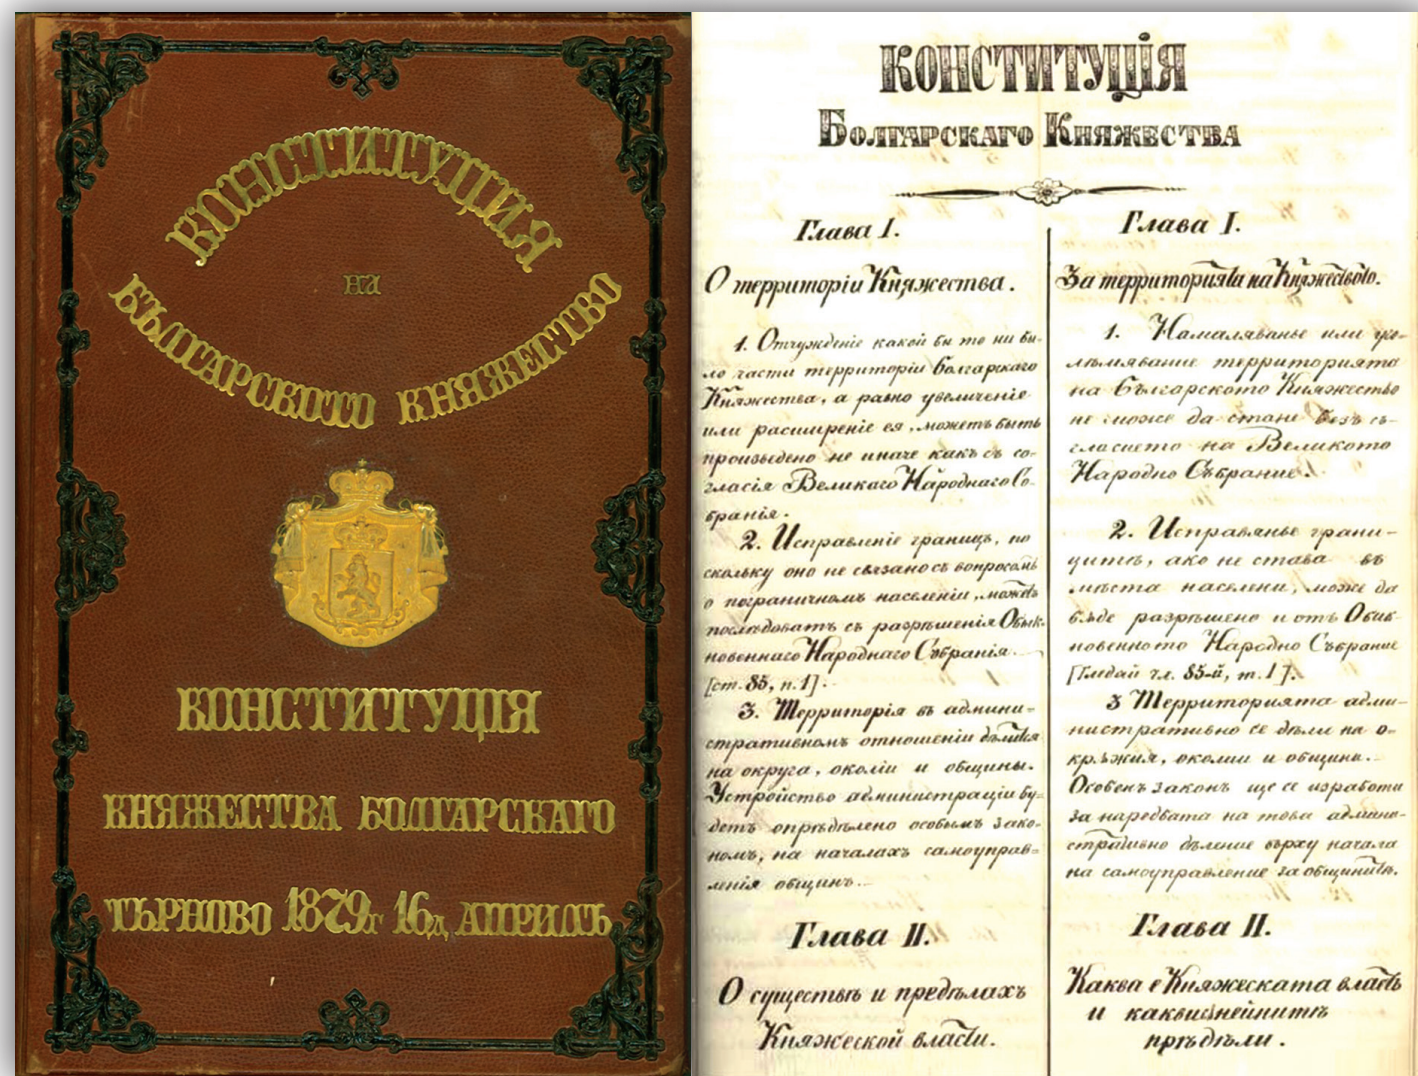 КОНСТИТУЦИЯ
на
БЪЛГАРСКОТО КНЯЖЕСТВО
КОНСТИТУЦІЯ
КНЯЖЕСТВА БОЛГАРСКАГО
ТЪРНОВО 1879г 16д. АПРИЛЪ
КОНСТИТУЦІЯ
БОЛГАРСКАГО КНЯЖЕСТВА
Глава I.
О территоріи Княжества.
1. Отчужденіе какой бы то ни бы-
ло части территоріи Болгарскаго
Княжества, а равно увеличеніе
или расширеніе ея, можетъ быть
произведено не иначе какъ съ со-
гласія Великаго Народнаго Со-
бранія.
2. Исправленіе границъ, по
скольку оно не связано съ вопросомъ
о пограничномъ населеніи, можетъ
послѣдовать съ разрѣшенія Обык-
новеннаго Народнаго Собранія.
[ст. 85, п. 1].
3. Территорія въ админи-
стративномъ отношеніи дѣлится
на округа, околіи и общины.
Устройство администраціи бу-
детъ опрѣдѣлено особымъ зако-
номъ, на началахъ самоуправ-
ленія общинъ.
Глава II.
О существѣ и предѣлахъ
Княжеской власти.
Глава I.
За территорията на Княжеството.
1. Намаляванье или уго-
лѣмявание территорията
на Българското Княжество
не може да стане безъ съ-
гласието на Великото
Народно Събрание.
2. Исправянье грани-
цитѣ, ако не става въ
мѣста населени, може да
бѫде разрѣшено и отъ Обик-
новенното Народно Събрание
[Гледай чл. 85-й, т. 1].
3 Территорията адми-
нистративно се дѣли на о-
крѫжия, околии и общини.
Особенъ законъ ще се изработи
за наредбата на това админи-
стративно дѣление върху начала
на самоуправление за общинитѣ.
Глава II.
Каква е Княжеската власть
и какви нейнитѣ
прѣдѣли.